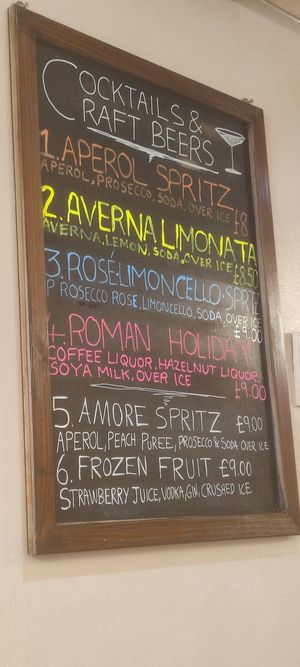 COCKTAILS &
CRAFT BEERS
1. APEROL SPRITZ
APEROL, PROSECCO, SODA, OVER ICE £8
2. AVERNA LIMONATA
AVERNA, LEMON, SODA, OVER ICE £8.50
3. ROSÉ-LIMONCELLO-SPRITZ
PROSECCO ROSE, LIMONCELLO, SODA, OVER ICE
£9.00
4. ROMAN HOLIDAY
COFFEE LIQUOR, HAZELNUT LIQUOR,
SOYA MILK, OVER ICE
£9.00
5. AMORE SPRITZ £9.00
APEROL, PEACH PUREE, PROSECCO & SODA OVER ICE
6. FROZEN FRUIT £9.00
STRAWBERRY JUICE, VODKA, GIN, CRUSHED ICE